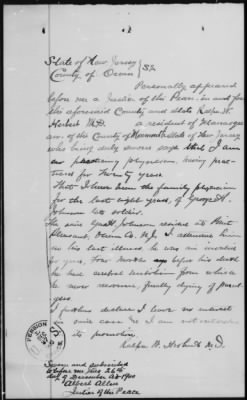 State of New Jersey
County of Ocean } SS.
Personally appeared
before me a Justice of the Peace in and for
the aforesaid County and State Ralph H.
Herbert M.D. a resident of Manasqu-
an. of the County of Monmouth & State of New Jersey
who being duly sworn says that I am
a practicing physician, having prac-
ticed for twenty years.
That I have been the family physician
for the last eight years, of George H.
Johnson late soldier.
The said Geo H. Johnson resided at Point
Pleasant, Ocean Co. N.J. I attended him
in his last illness. he was an invalid
for years. Four months before his death
he had cerebral embolism from which
he never recovered, finally dying of paral-
yses.
I further declare I have no interest
in said case and I am not interested in
its prosecution.
Ralph H. Herbert M.D.
Sworn and subscribed
to before me this 26th
day of December A.D. 1900
Albert Allen
Justice of the Peace